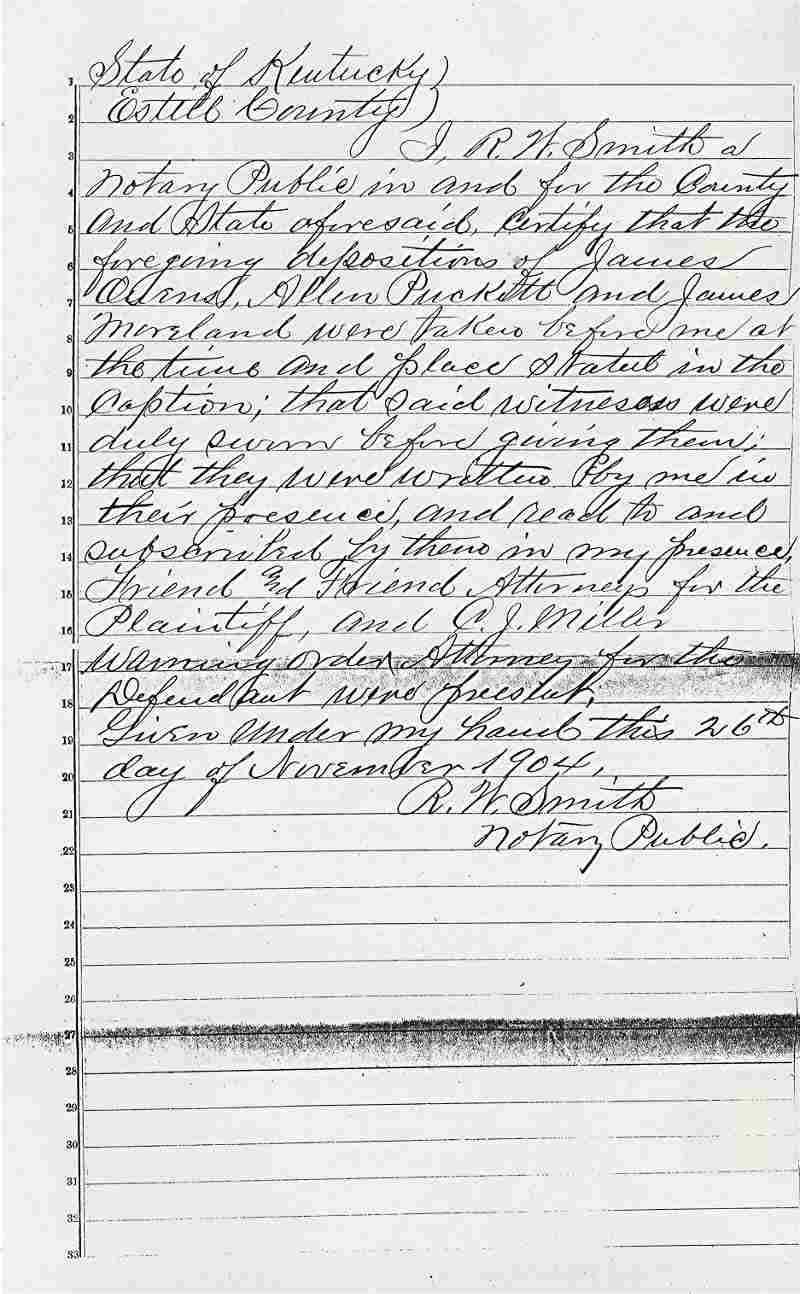 1 State of Kentucky)
2 Estill County)
3 I, R. W. Smith a
4 Notary Public in and for the County
5 and State aforesaid, certify that the
6 foregoing depositions of James
7 Owens, Allen Puckett and James
8 Moreland were taken before me at
9 the time and place stated in the
10 Caption; that said witnesses were
11 duly sworn before giving them;
12 that they were written by me in
13 their presence, and read to and
14 subscribed by them in my presence,
15 Friend and Friend Attorneys for the
16 Plaintiff, and C. J. Miller
17 Warning order Attorney for the
18 Defendant were present.
19 Given under my hand this 26th
20 day of November 1904,
21 R. W. Smith
22 Notary Public.
23
24
25
26
27
28
29
30
31
32
33